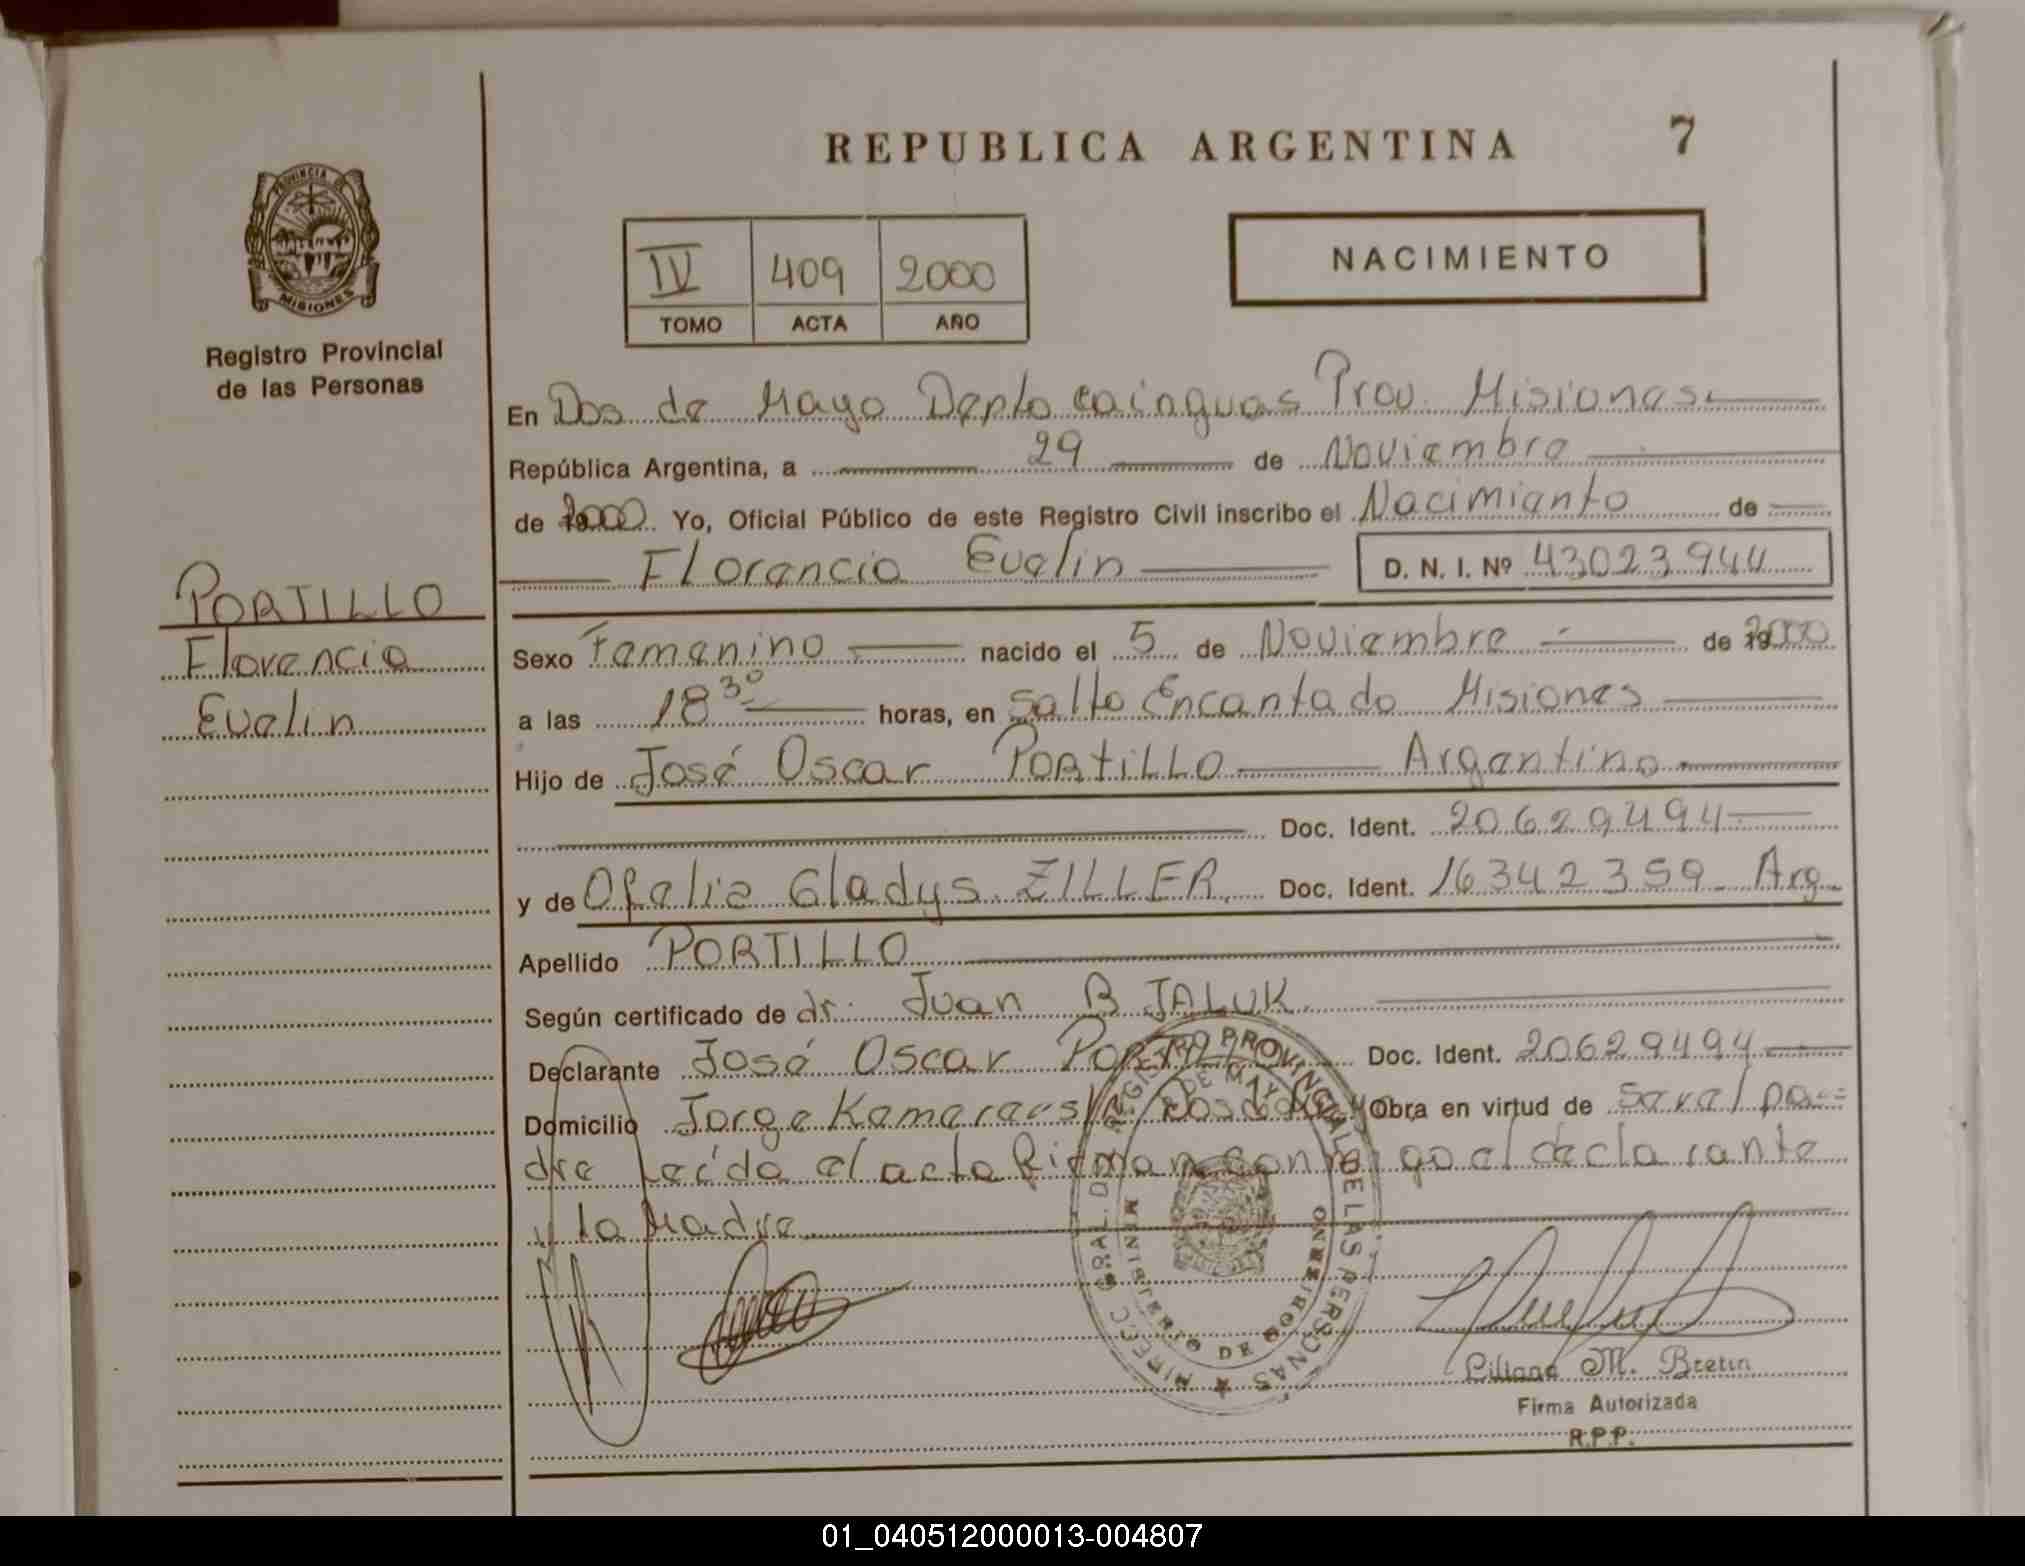 REPUBLICA ARGENTINA 7
PROVINCIA DE
MISIONES
Registro Provincial
de las Personas
IV 409 2000
TOMO ACTA AÑO
NACIMIENTO
En Dos de Mayo Depto cainguas Prov. Misiones.
República Argentina, a 29 de Noviembre
de 2000 Yo, Oficial Público de este Registro Civil inscribo el Nacimiento de
Florencia Evelin D. N. I. Nº 43023944
PORTILLO
Florencia
Evelin
Sexo Femenino nacido el 5 de Noviembre de 2000
a las 18 30 horas, en Salto Encantado Misiones
Hijo de José Oscar PORTILLO Argentino
Doc. Ident. 20629494
y de Ofelia Gladys ZILLER Doc. Ident. 16342359 Arg.
Apellido PORTILLO
Según certificado de dr. Juan B JALUK
Declarante José Oscar Portillo Doc. Ident. 20629494
Domicilio Jorge Dos de Mayo Obra en virtud de ser el pa=
dre Leída el acta Firman conmigo el declarante
y la Madre
REGISTRO PROVINCIAL DE LAS PERSONAS
DOS DE MAYO
MINISTERIO DE GOBIERNO
Liliana M. Bretin
Firma Autorizada
R.P.P.
01_040512000013-004807